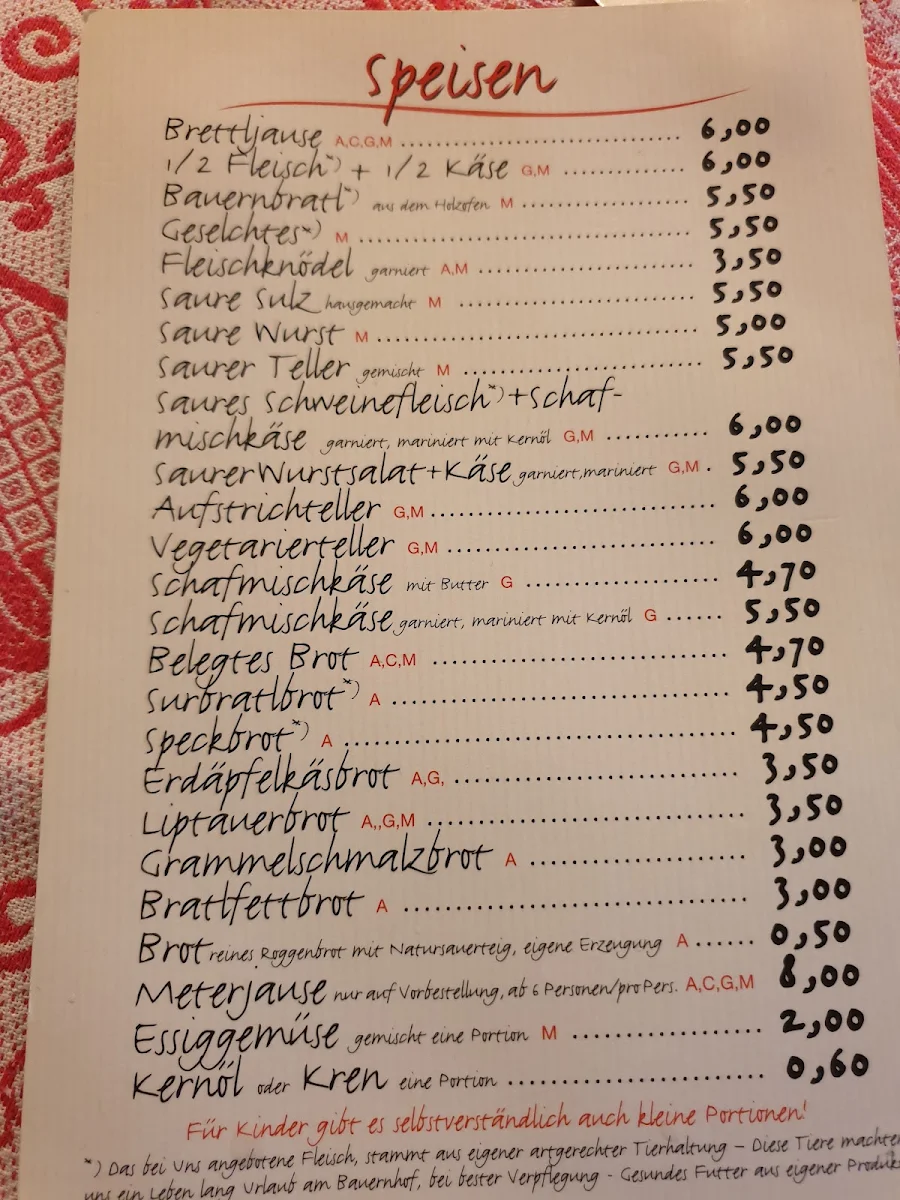 Speisen
Brettljause A,C,G,M ........................ 6,00
1/2 Fleisch*) + 1/2 Käse G,M ............ 6,00
Bauernbratl*) aus dem Holzofen M ................ 5,50
Geselchtes*) M ................................ 5,50
Fleischknödel garniert A,M ..................... 3,50
Saure Sulz hausgemacht M ..................... 5,50
Saure Wurst M ............................... 5,00
Saurer Teller gemischt M ....................... 5,50
Saures Schweinefleisch*)+Schaf-
mischkäse garniert, mariniert mit Kernöl G,M .......... 6,00
Saurer Wurstsalat+Käse garniert,mariniert G,M . 5,50
Aufstrichteller G,M ........................... 6,00
Vegetarierteller G,M .......................... 6,00
Schafmischkäse mit Butter G .................. 4,70
Schafmischkäse garniert, mariniert mit Kernöl G ...... 5,50
Belegtes Brot A,C,M ........................... 4,70
Surbratlbrot*) A ............................... 4,50
Speckbrot*) A .................................. 4,50
Erdäpfelkäsbrot A,G, .......................... 3,50
Liptauerbrot A,,G,M ............................. 3,50
Grammelschmalzbrot A .................... 3,00
Bratlfettbrot A ................................ 3,00
Brot reines Roggenbrot mit Natursauerteig, eigene Erzeugung A ...... 0,50
Meterjause nur auf Vorbestellung, ab 6 Personen/pro Pers. A,C,G,M 8,00
Essiggemüse gemischt eine Portion M .................. 2,00
Kernöl oder Kren eine Portion ........................ 0,60
Für Kinder gibt es selbstverständlich auch kleine Portionen!
*) Das bei Uns angebotene Fleisch, stammt aus eigener artgerechter Tierhaltung – Diese Tiere machten
uns ein Leben lang Urlaub am Bauernhof, bei bester Verpflegung - Gesundes Futter aus eigener